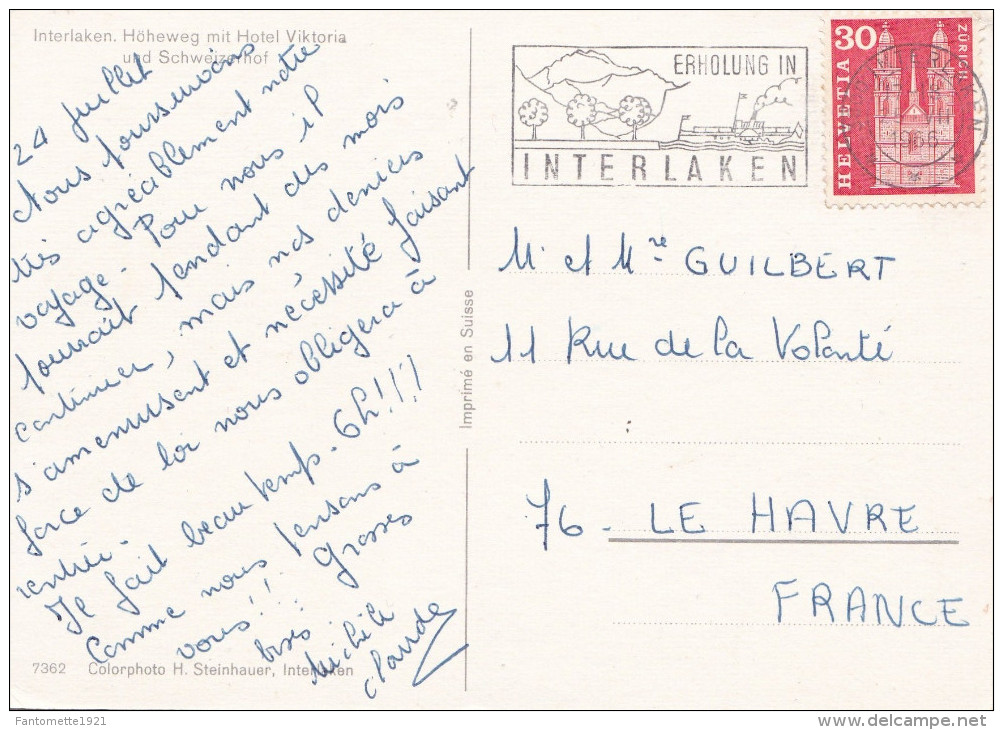 Interlaken. Höheweg mit Hotel Viktoria
und Schweizerhof
24 Juillet
Nous poursuivons
très agréablement notre
voyage. Pour nous il
pourrait pendant des mois
continuer, mais nos deniers
s'amenuisant et nécessité faisant
force de loi nous obligera à
rentrer.
Il fait beau temp. 6h!!!!
Comme nous pensons à
vous!! Grosses
bises
Michèle
Claude
7362 Colorphoto H. Steinhauer, Interlaken
Imprimé en Suisse
ERHOLUNG IN
INTERLAKEN
30
HELVETIA
ZÜRICH
M et Mme GUILBERT
11 Rue de la Volonté
76 - LE HAVRE
FRANCE
Fantomette1921
delcampe.net